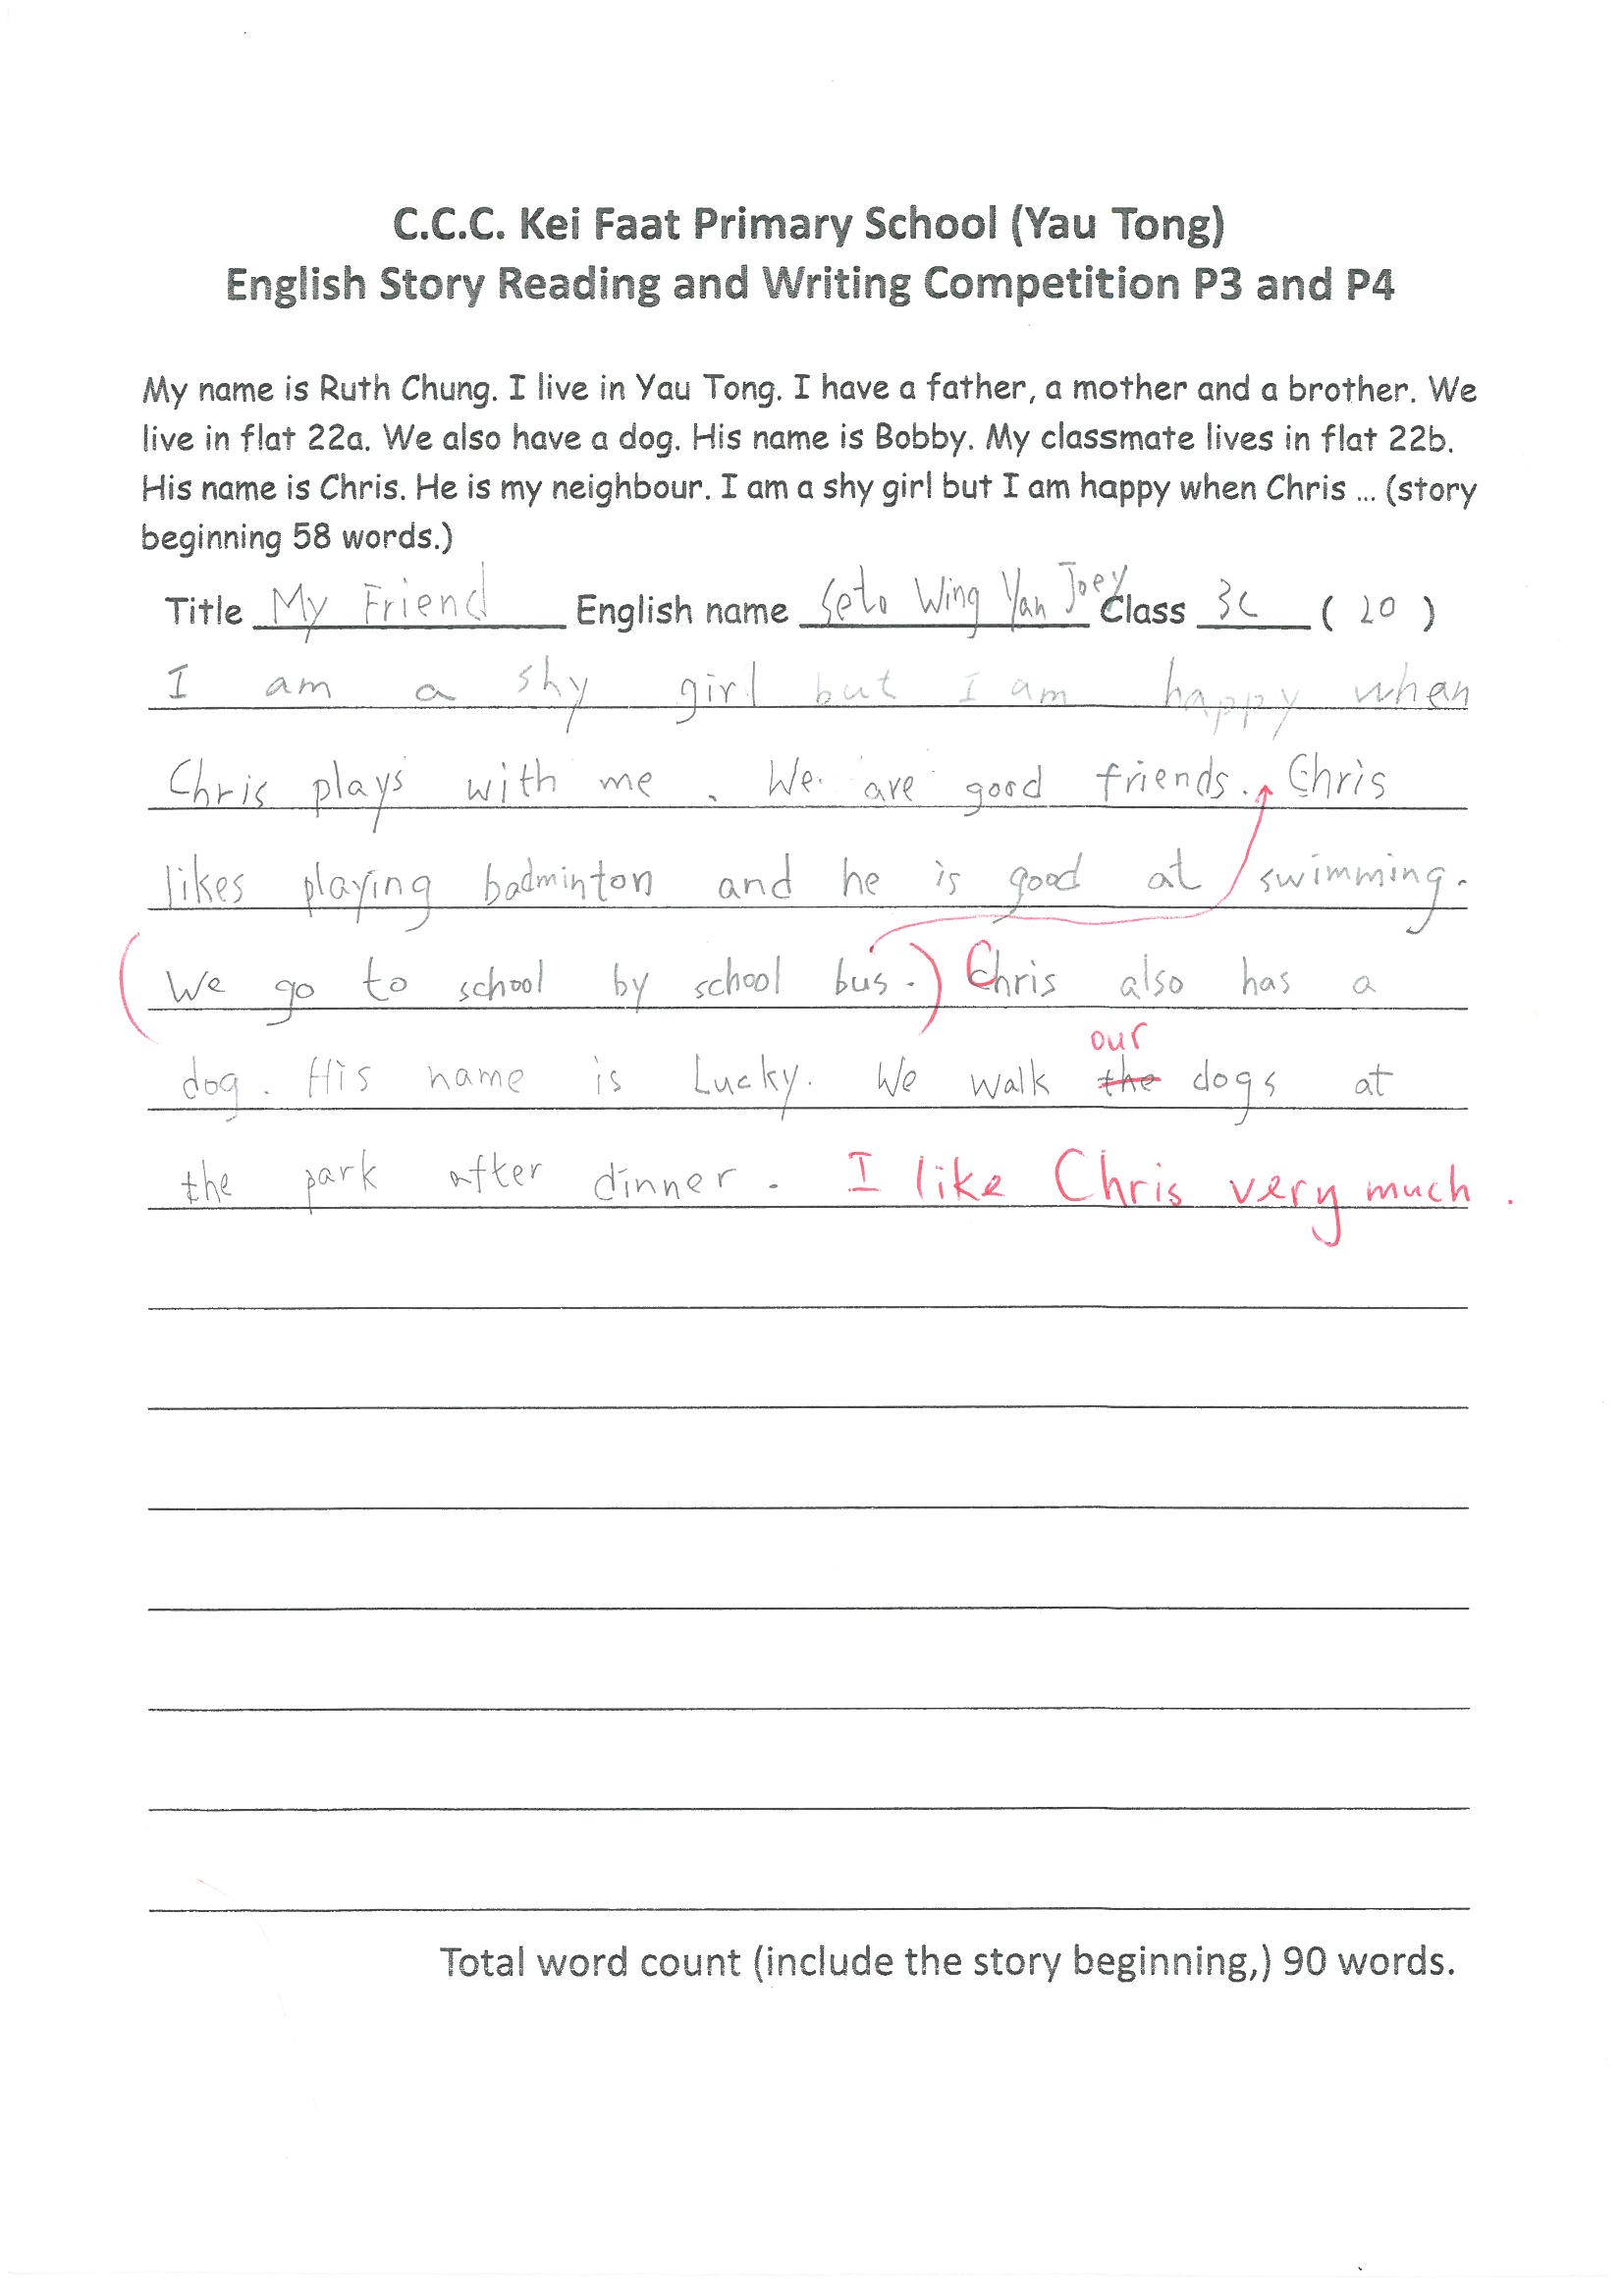 C.C.C. Kei Faat Primary School (Yau Tong)
English Story Reading and Writing Competition P3 and P4
My name is Ruth Chung. I live in Yau Tong. I have a father, a mother and a brother. We
live in flat 22a. We also have a dog. His name is Bobby. My classmate lives in flat 22b.
His name is Chris. He is my neighbour. I am a shy girl but I am happy when Chris ... (story
beginning 58 words.)
Title My Friend English name Seto Wing Yan Joey Class 3C ( 20 )
I am a shy girl but I am happy when
Chris plays with me . We are good friends. Chris
likes playing badminton and he is good at swimming.
(We go to school by school bus.) Chris also has a
our
dog. His name is Lucky. We walk the dogs at
the park after dinner. I like Chris very much.
Total word count (include the story beginning,) 90 words.